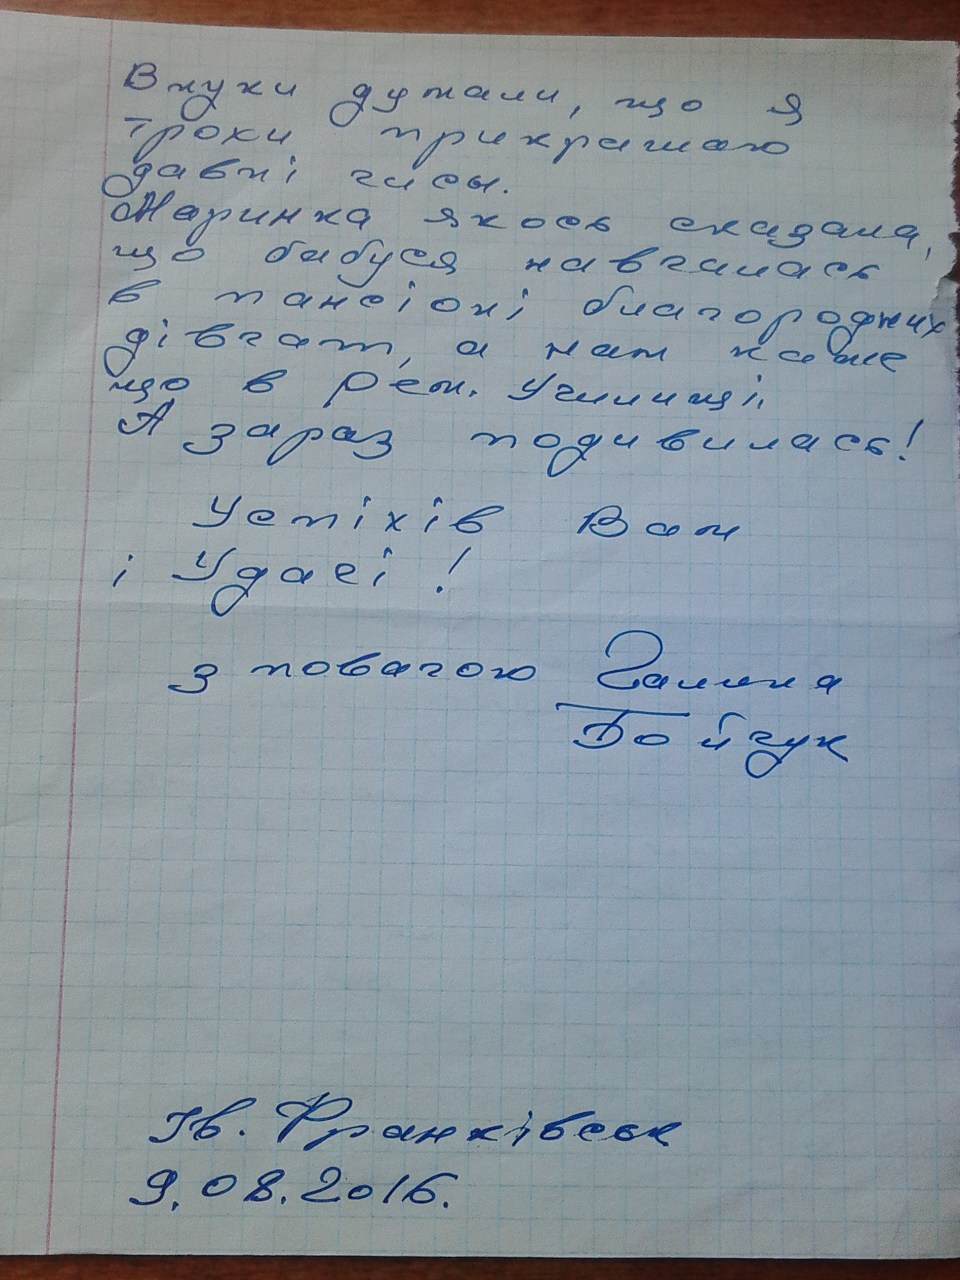 Внуки думали, що я
трохи прикрашаю
давні часы.
Маринка якось сказала,
що бабуся навчалась
в пансіоні благородних
дівчат, а нам каже
що в Рем. Училищі.
А зараз подивилась!
Успіхів Вам
і Удачі!
з повагою Галина
Бойчук
Ів. Франківськ
9.08.2016.